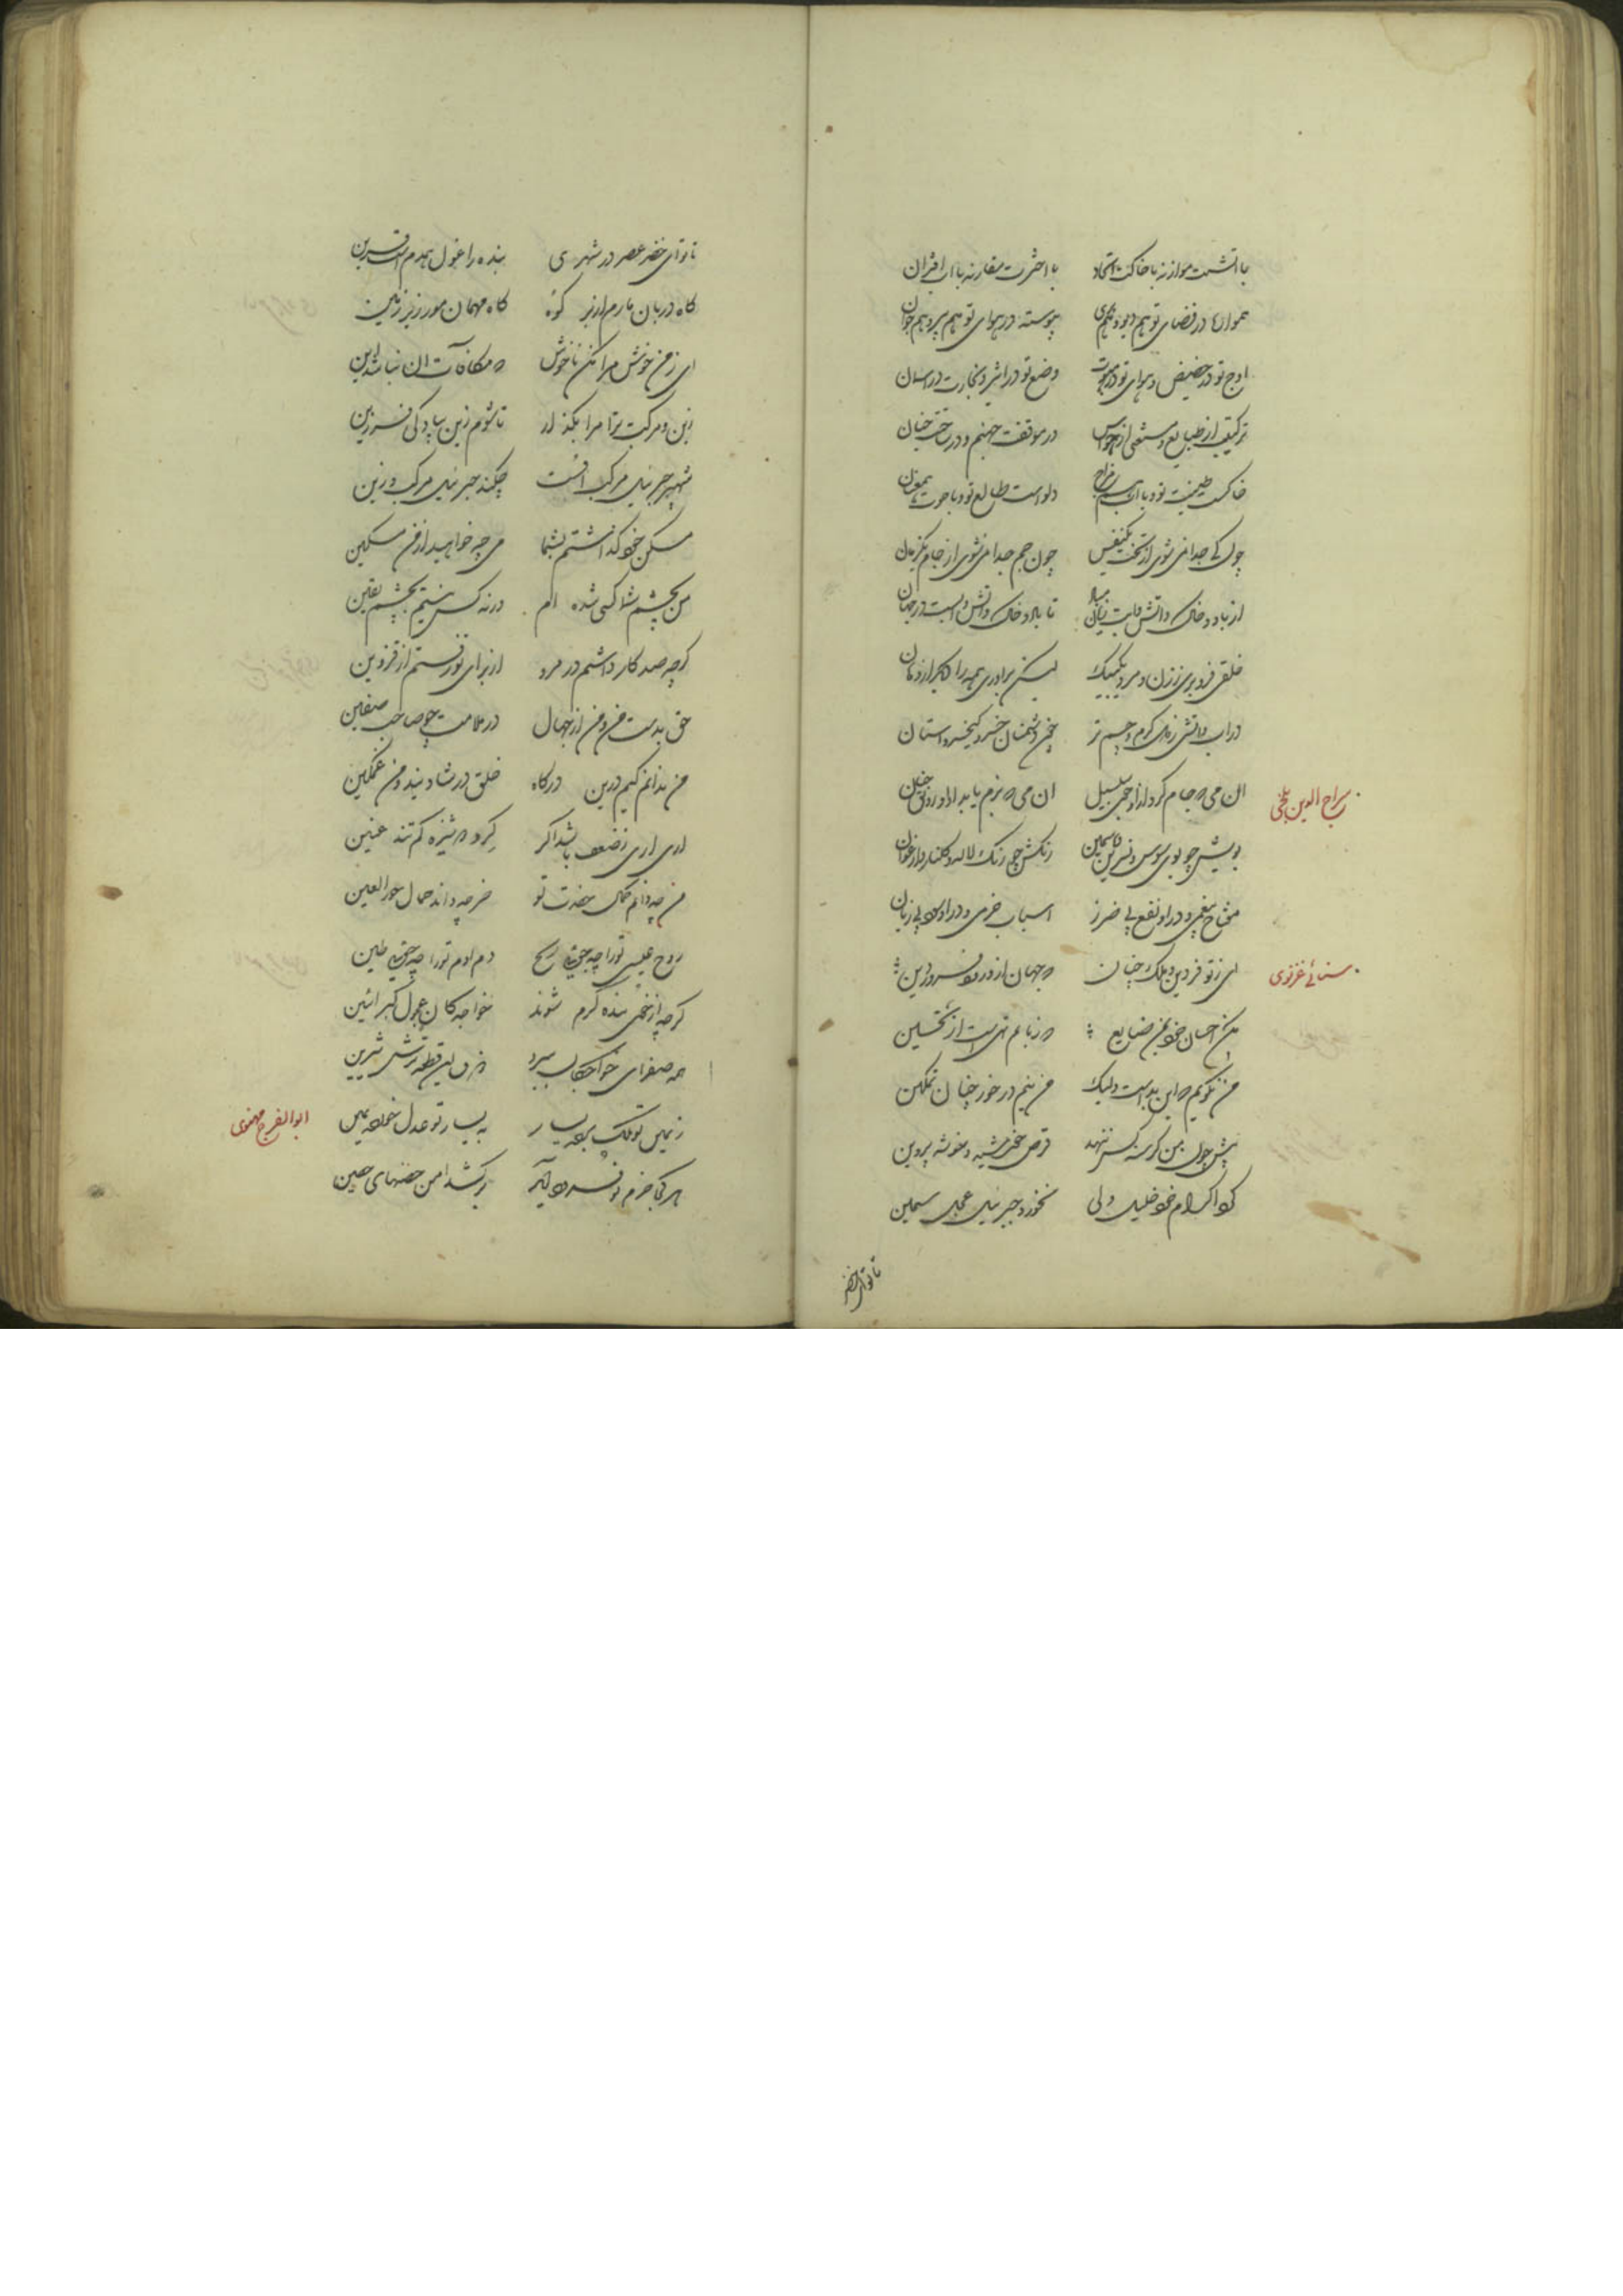 با آتشت موازنه با خاکت اتحاد با اخترت مقارنه با آب اقتران
هموار در فضای تو هم دیو و هم پری پیوسته در هوای تو هم پیر و هم جوان
اوج تو در حضیض و هوای تو در وضع تو در اثیر و بخارت در آسمان
ترکیبت از طبایع و مستغنی از حواس در موقفت جهنم و در ساحتت جنان
خاکست طینت تو و با آب دلو است طالع تو و با حوت
چون کی جدا نمی شوی از تخت یکنفس چون جم جدا نمی شوی از جام یکزمان
از باد و خاک و آتش و آبت تا باد و خاک و آتش و آبست در جهان
خلقی فرو بری ز زن و مرد یکبیک لیکن برآوری همه را دیگر از دهان
در آب و آتشی ز دل گرم و چشم تر چون دشمنان خسرو کیخسرو آستان
سراج الدین بلخی
آن می که جام گردد ازو حوض سلسبیل آن می که بزم یابد ازو رونق جنان
بویش چو بوی سوسن و نسرین و یاسمین رنگش چو رنگ لاله و گلنار و ارغوان
مفتاح بیغمی و در او نفع بی ضرر اسباب خرمی و در او سود بی زیان
سنائی غزنوی
ای ز تو فر دین و ملک چنان که جهان از ورود فروردین
مکن احسان خود بمن ضایع که زبانم تهی است از تحسین
من نگویم که این بد است ولیک من نیم در خور چنان تمکین
پیش چون من گرسنه کس ننهد قرص خورشید و خوشه پروین
کرد اکرام خود خلیل ولی نخورد جبرئیل عجل سمین
تا تو ای خضر
تا تو ای خضر عصر در شهری بنده را غول همدم است و قرین
گاه دربان مارم از بر کوه گاه مهمان مور زیر زمین
ای ز من خوش مرا مکن ناخوش که مکافات آن نباشد این
زین و مرکب ترا مرا بگذار تا شوم زین پیادگی فرزین
شهپر جبرئیل مرکب اوست چکند جبرئیل مرکب و زین
مسکن خود گذاشتم بشما می چه خواهید از من مسکین
من بچشم شما کسی شده ام ورنه کس نیستم بچشم یقین
گرچه صد کار داشتم در مرو از برای تو رفتم از قزوین
حق بدست من و من از جهال در ملامت چو صاحب صفین
من ندانم کیم درین درگاه خلق در شادیند و من غمگین
آری آری ز ضعف باشد اگر گرد دوشیزه کم تند عنین
من چه دانم کمال حضرت تو خر چه داند جمال حور العین
روح عیسی تو را چه جویی ریح دم آدم تو را چه جویی طین
گرچه از نخمی بنده گرم شوند خواجگان عجول کبر آئین
همه صفرای خواجگان ببرد ذوق این قطعه ترش شیرین
ابوالفرج مهنوی
ز یمین تو ملک برده یسار به یسار تو عدل خورده یمین
هر کجا حزم تو فرود آید برکشد امن حصنهای حصین